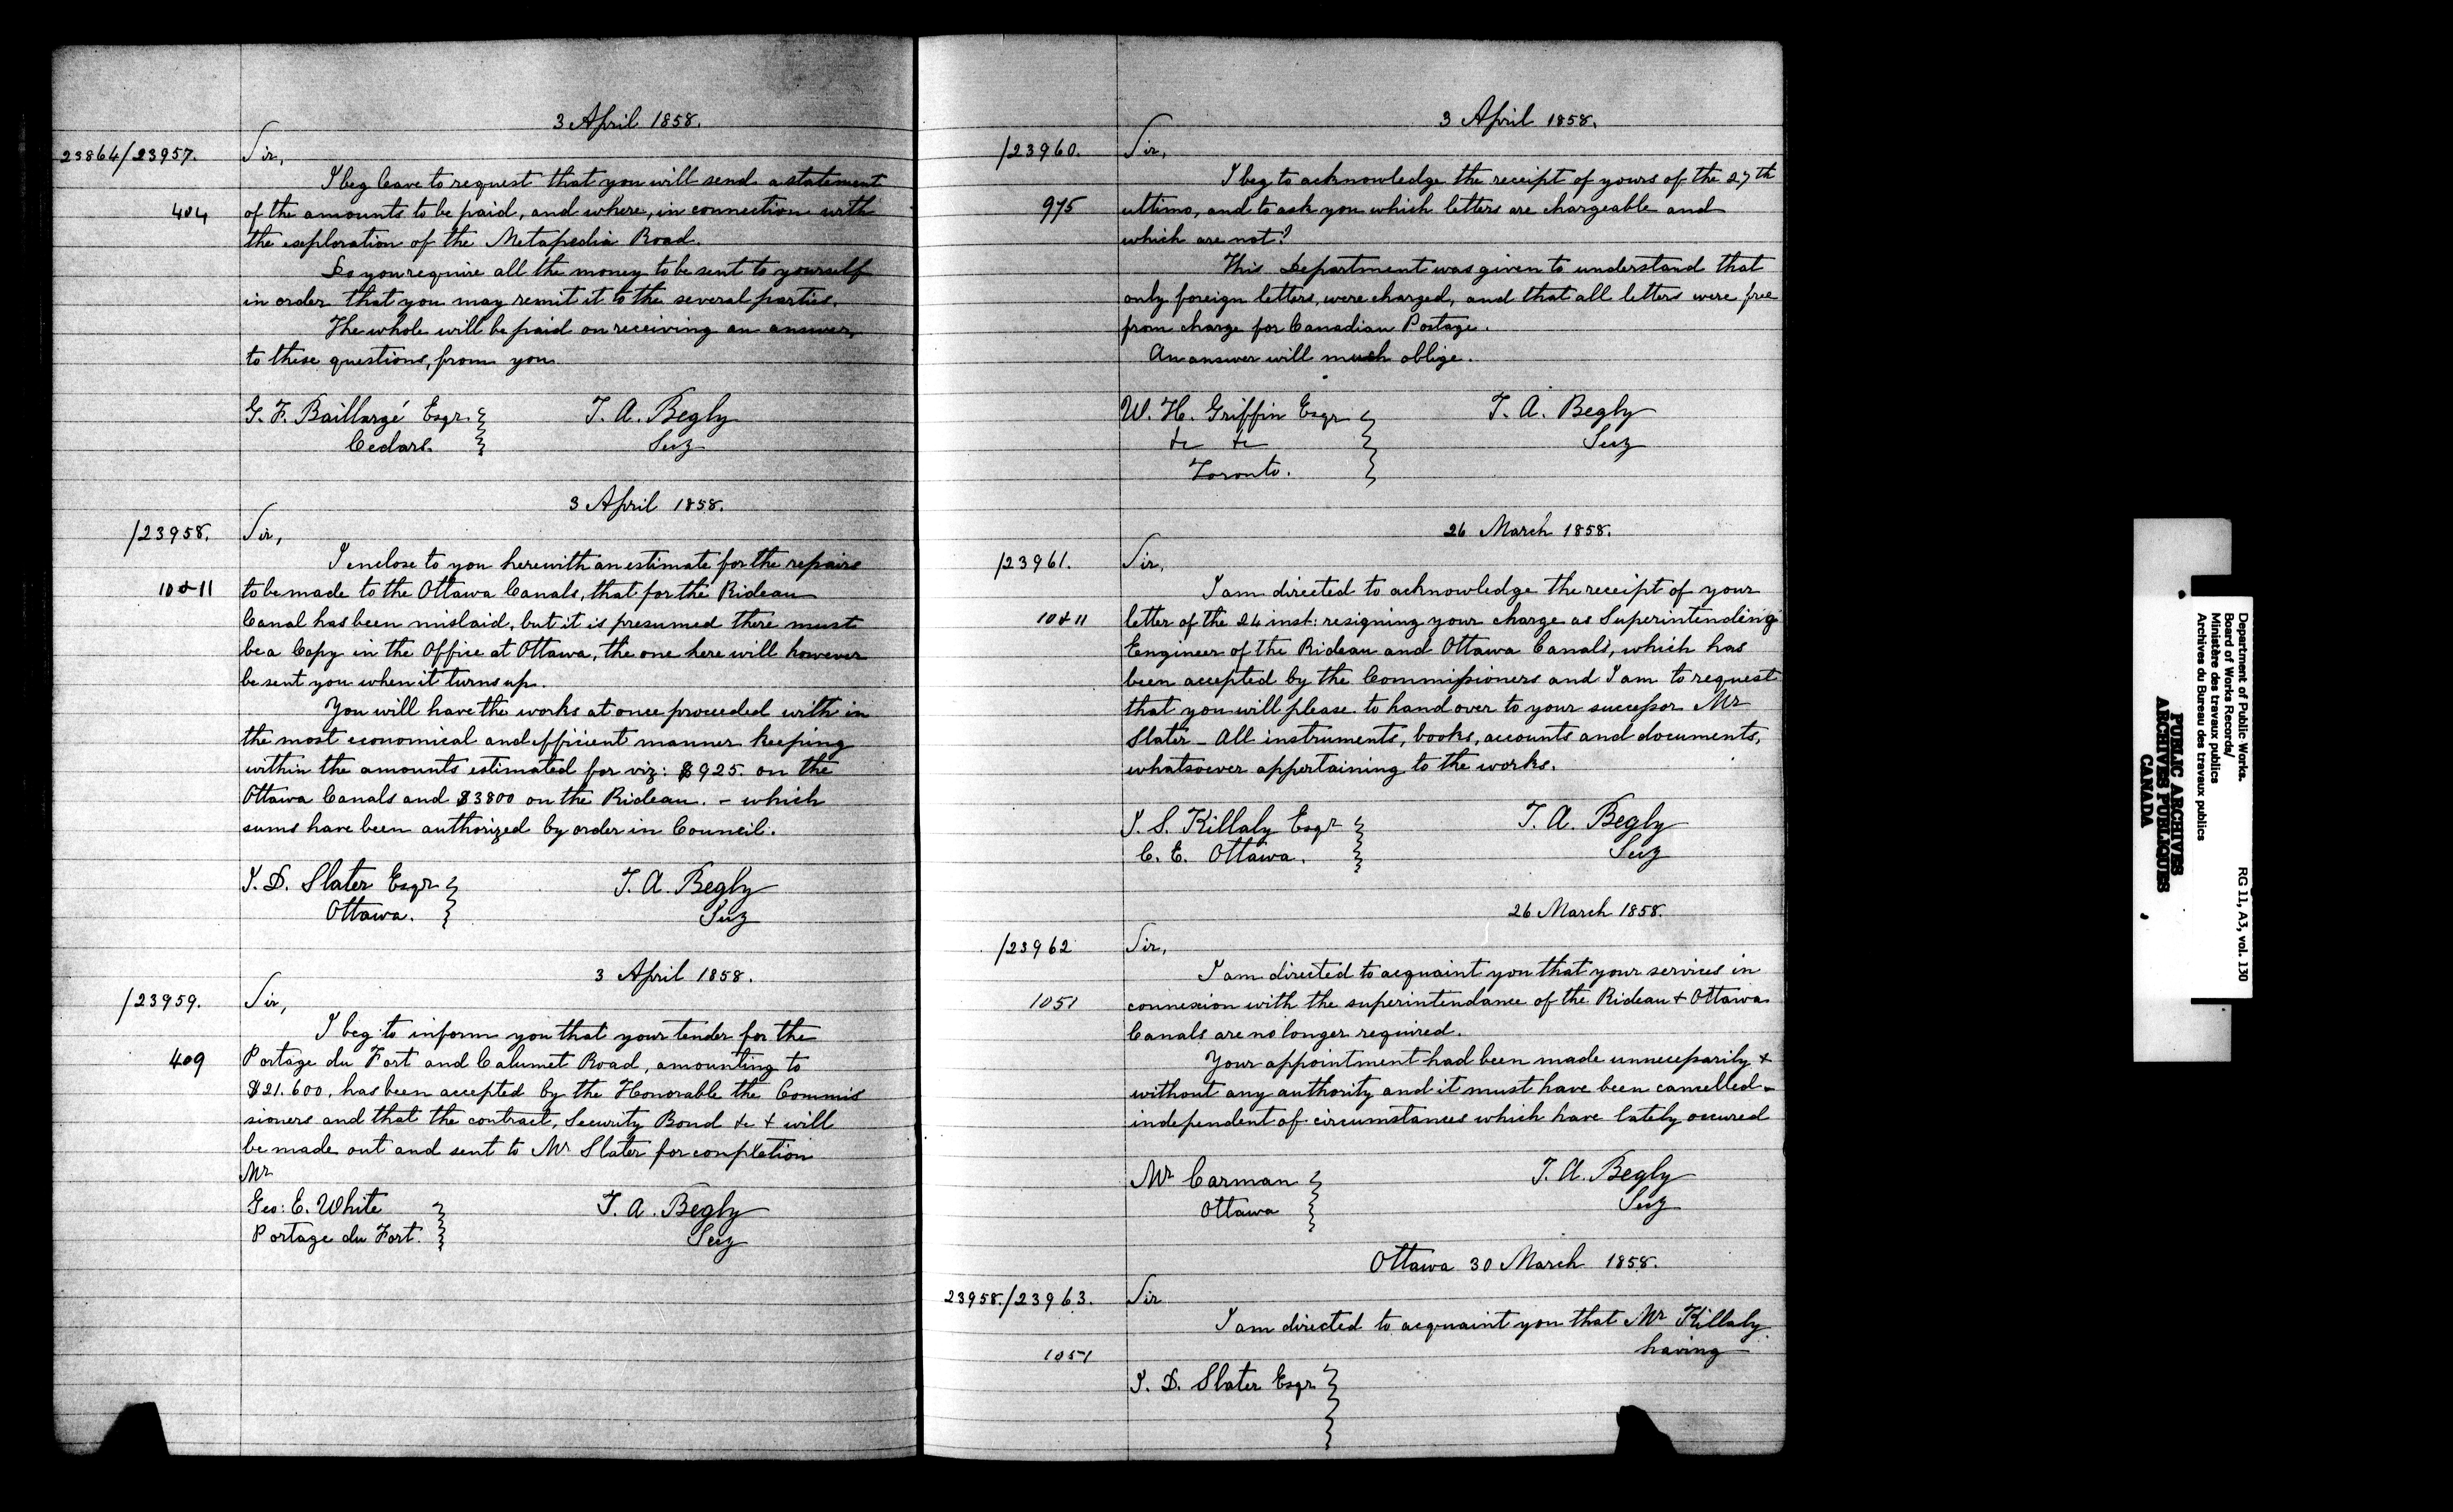 3 April 1858.
23864/23957. Sir,
I beg leave to request that you will send a statement
404 of the amounts to be paid, and where, in connection with
the exploration of the Metapedia Road.
Do you require all the money to be sent to yourself
in order that you may remit it to the several parties.
The whole will be paid on receiving an answer,
to these questions, from you
G. F. Baillargé Esqr. T. A. Begly
Cedars. Secy
3 April 1858.
/23958. Sir,
I enclose to you herewith an estimate for the repairs
10 & 11 to be made to the Ottawa Canals, that for the Rideau
Canal has been mislaid, but it is presumed there must
be a Copy in the Office at Ottawa, the one here will however
be sent you when it turns up.
You will have the works at once proceeded with in
the most economical and efficient manner keeping
within the amounts estimated for viz: $925. on the
Ottawa Canals and $3800 on the Rideau. - which
sums have been authorized by order in Council.
J. D. Slater Esqr T. A. Begly
Ottawa. Secy
3 April 1858.
/23959. Sir,
I beg to inform you that your tender for the
409 Portage du Fort and Calumet Road, amounting to
$21.600. has been accepted by the Honorable the Commis
sioners and that the contract, Security Bond &c + will
be made out and sent to Mr Slater for completion
Mr
Geo: E. White T. A. Begly
Portage du Fort. Secy
3 April 1858.
/23960. Sir,
I beg to acknowledge the receipt of yours of the 27th
975 ultimo, and to ask you which letters are chargeable and
which are not?
This Department was given to understand that
only foreign letters, were charged, and that all letters were free
from charge for Canadian Postage.
An answer will much oblige.
W. H. Griffin Esqr T. A. Begly
&c &c Secy
Toronto.
26 March 1858.
/23961. Sir,
I am directed to acknowledge the receipt of your
10 & 11 letter of the 24 inst: resigning your charge as Superintending
Engineer of the Rideau and Ottawa Canals, which has
been accepted by the Commissioners and I am to request
that you will please to hand over to your successor Mr
Slater - All instruments, books, accounts and documents,
whatsoever appertaining to the works.
J. S. Killaly Esqr T. A. Begly
C. E. Ottawa. Secy
26 March 1858.
/23962 Sir,
I am directed to acquaint you that your services in
1051 connexion with the superintendance of the Rideau & Ottawa
Canals are no longer required.
Your appointment had been made unnecessarily &
without any authority and it must have been cancelled -
independent of circumstances which have lately occured
Mr Carman T. A. Begly
Ottawa Secy
Ottawa 30 March 1858.
23958./23963. Sir
I am directed to acquaint you that Mr Killaly
1051 having
J. D. Slater Esqr
Department of Public Works.
Board of Works Records/
Ministère des travaux publics
Archives du Bureau des travaux publics
RG 11, A3, vol. 130
PUBLIC ARCHIVES
ARCHIVES PUBLIQUES
CANADA